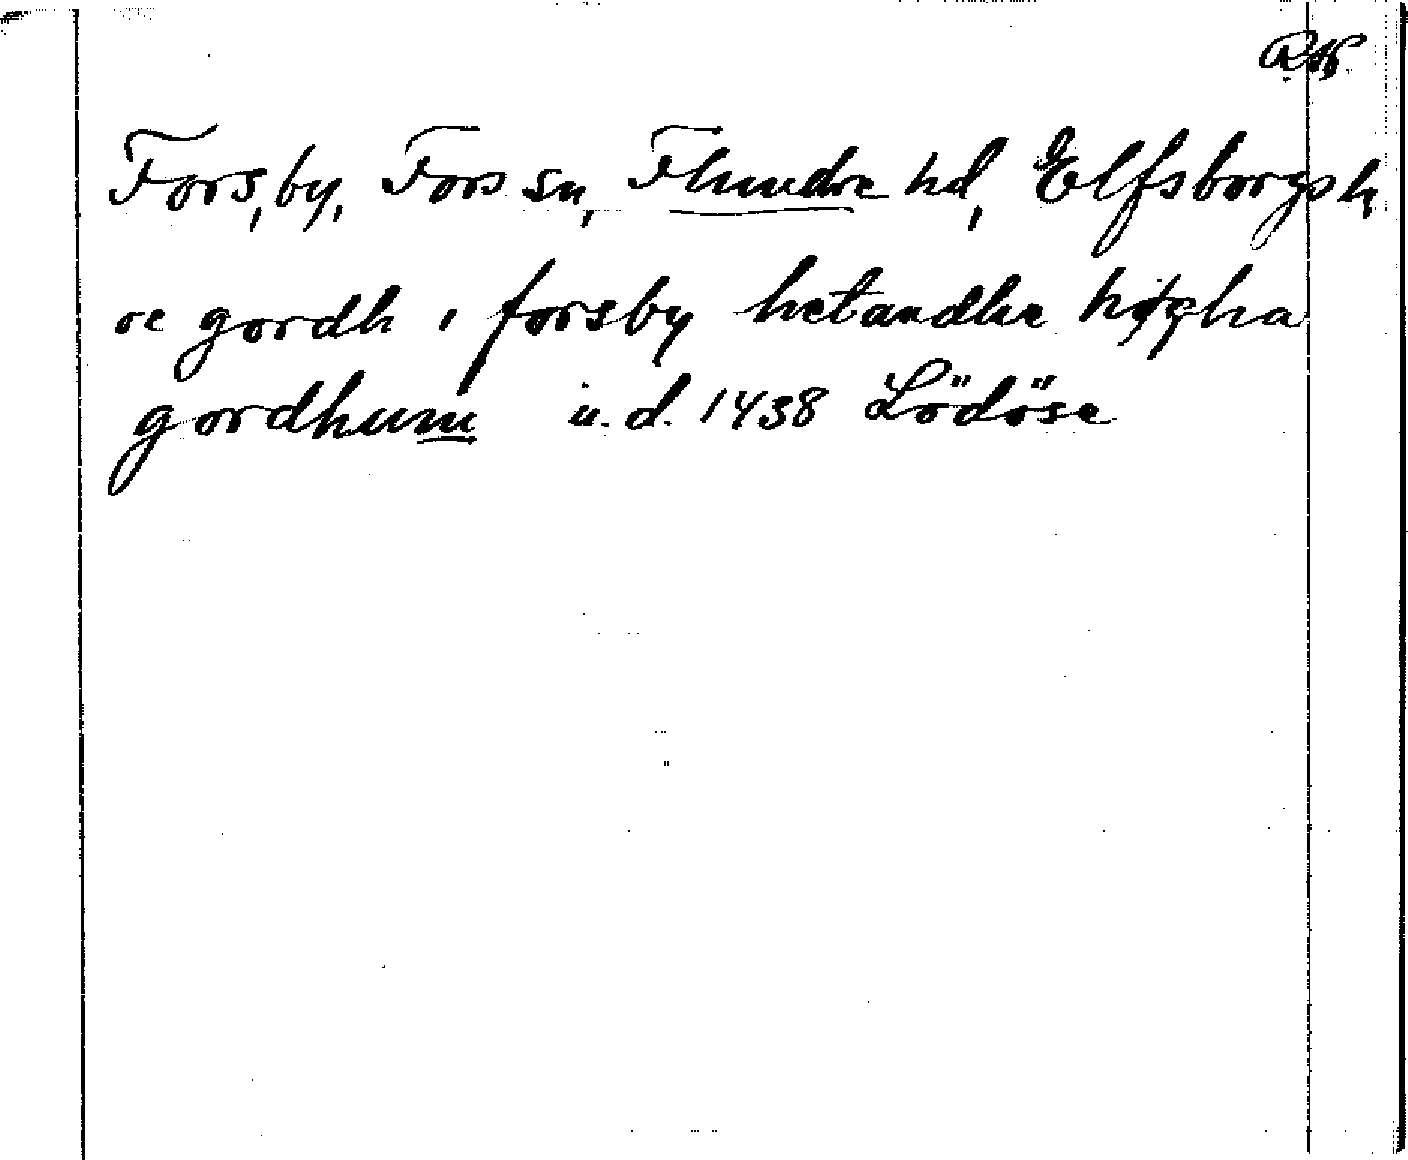 Forsby, Fors sn, Flundre hd, Elfsborgs l,
oc gordh i forsby hetandhe høgha
gordhum u.d. 1438 Lödöse